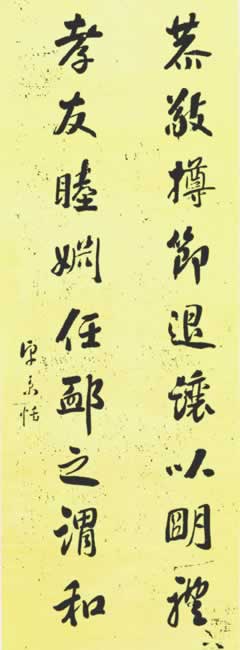 恭敬撙節退讓以明禮
孝友睦婣任卹之謂和